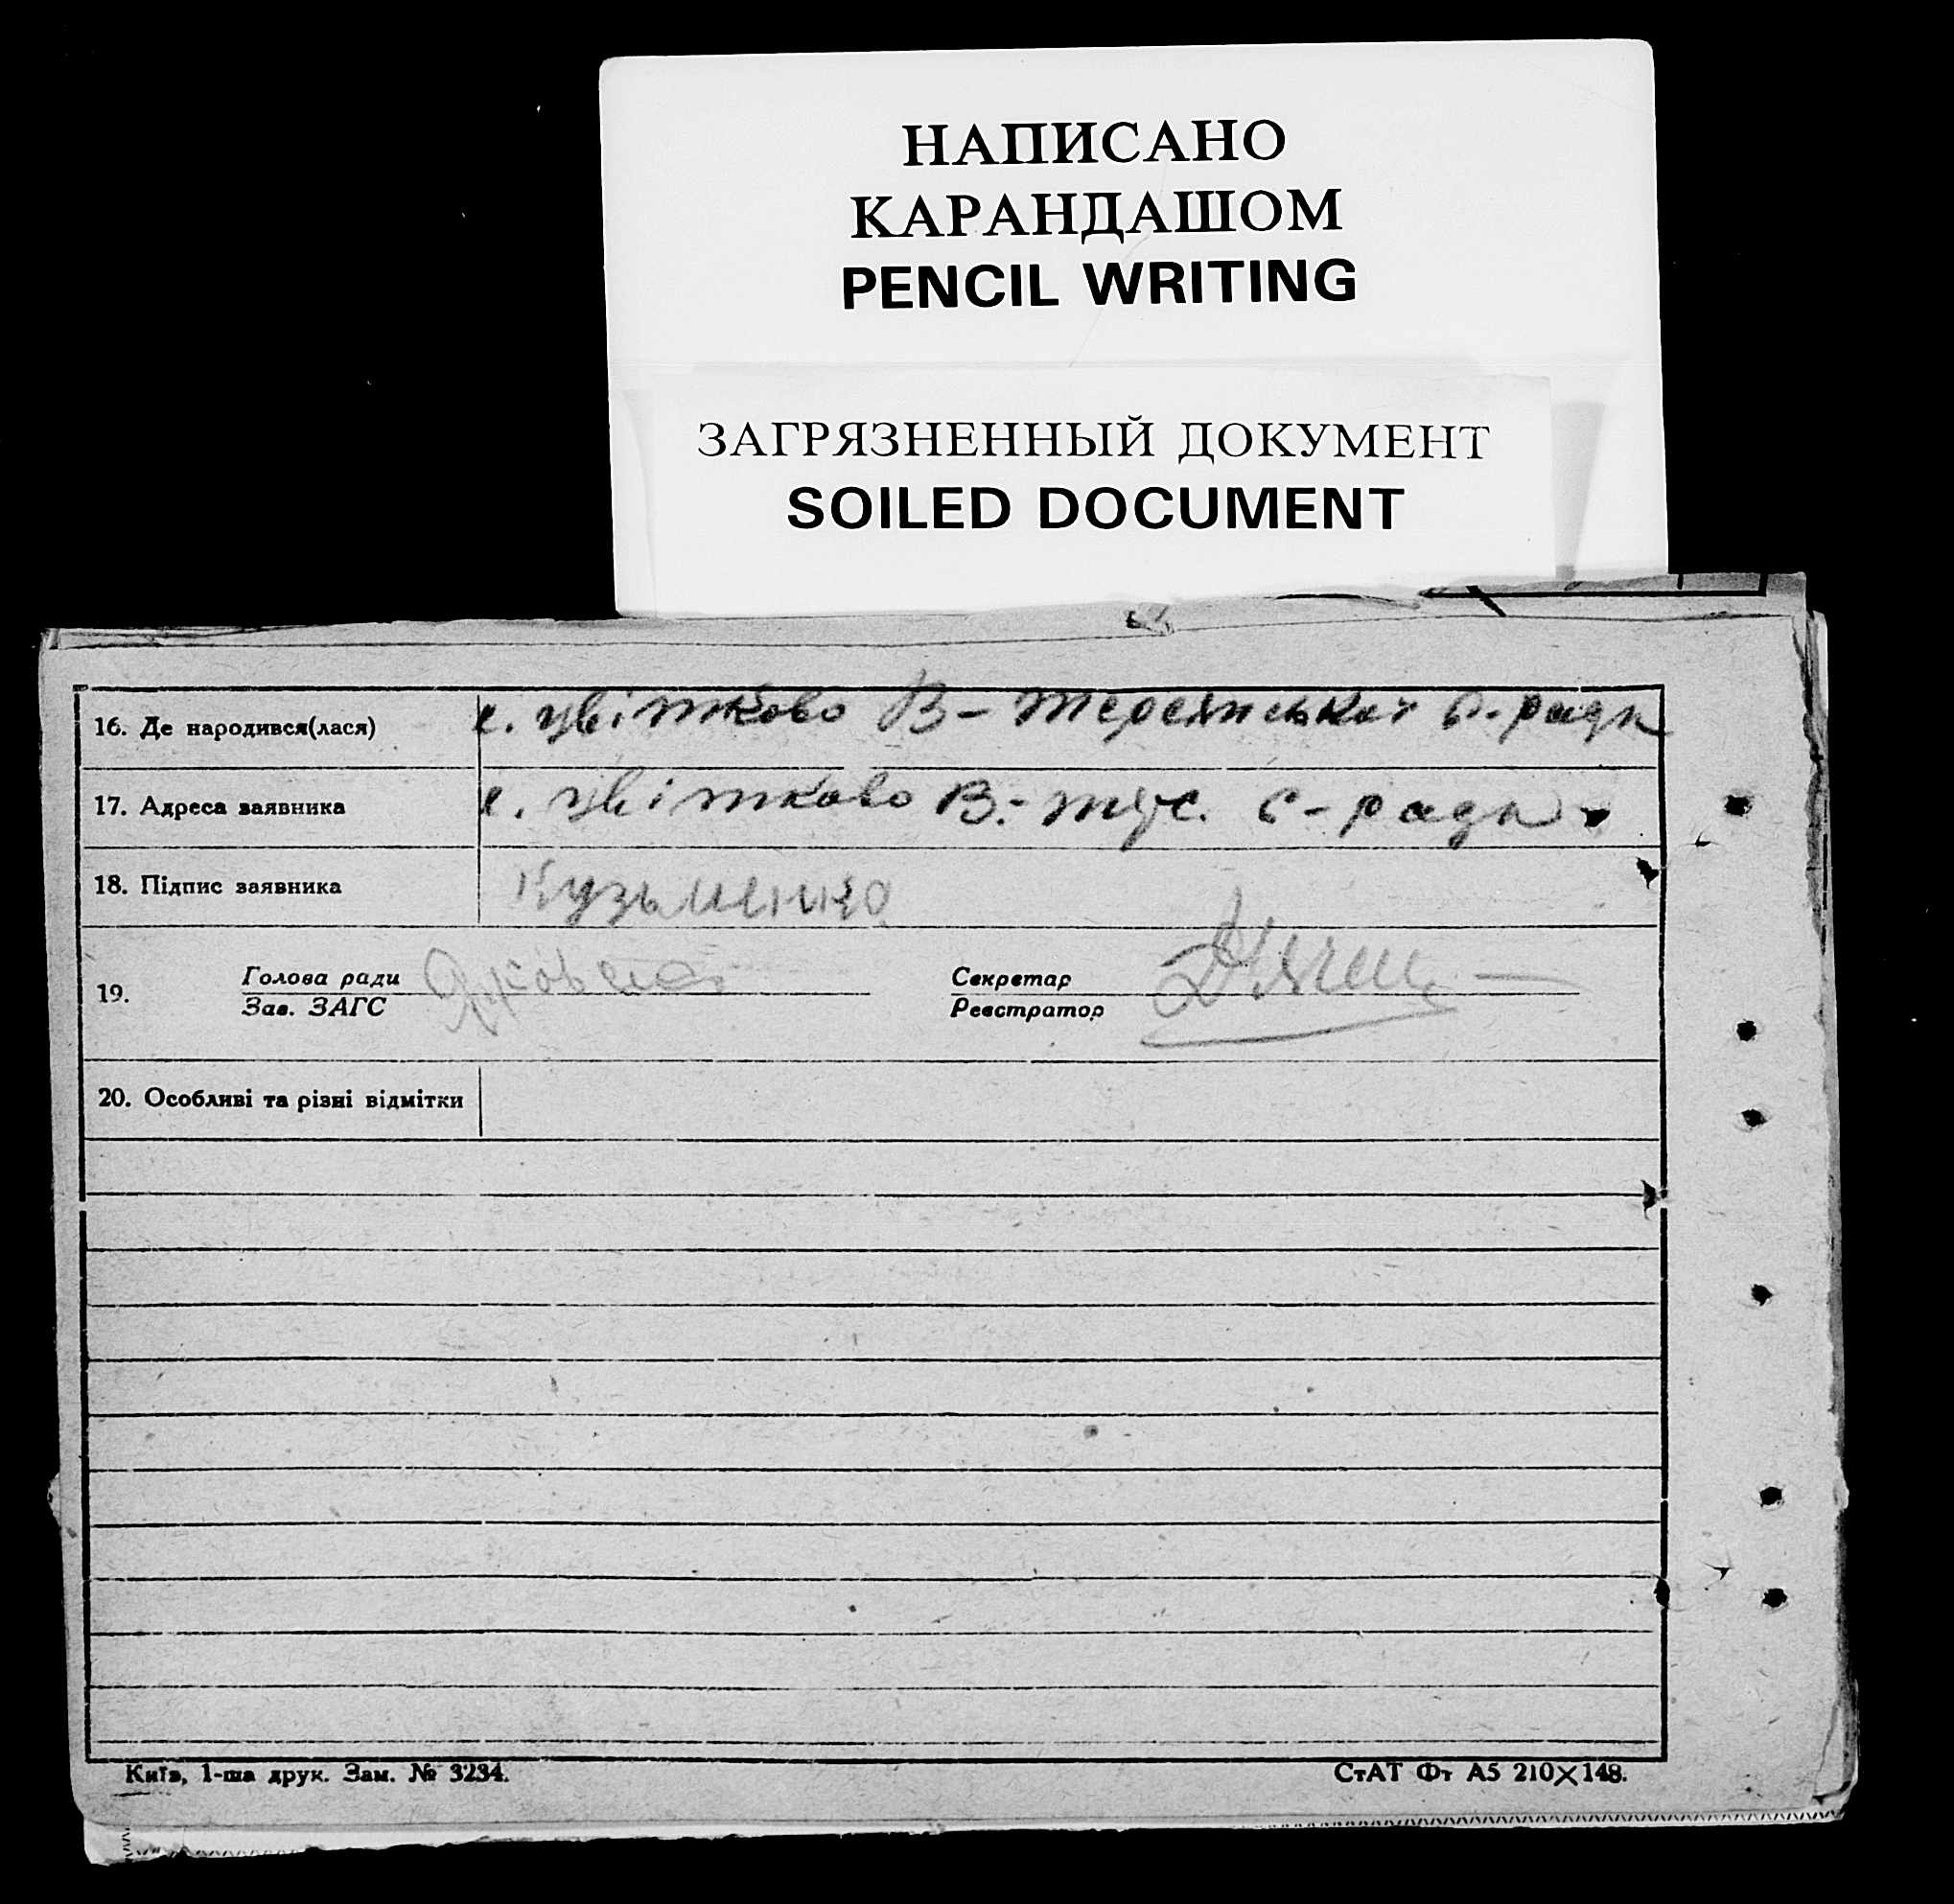 НАПИСАНО
КАРАНДАШОМ
PENCIL WRITING
ЗАГРЯЗНЕННЫЙ ДОКУМЕНТ
SOILED DOCUMENT
16. Де народився(лася) с. Цвітково В- с-ради
17. Адреса заявника с. Цвітково В.- с-ради
18. Підпис заявника Кузьменко
19. Голова ради Секретар
Зав. ЗАГС Реєстратор
20. Особливі та різні відмітки
Київ, 1-ша друк. Зам. № 3234. СтАТ Фт А5 210×148.